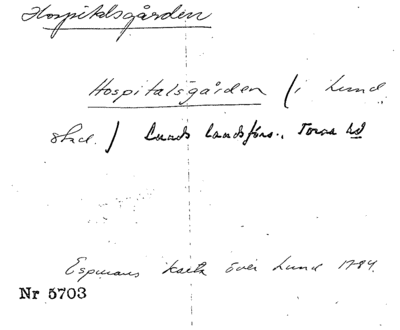 Hospitalsgården
Hospitalsgården (i Lund
stad.) Lunds landsförs., Torna hd
Espmans karta över Lund 1784.
Nr 5703